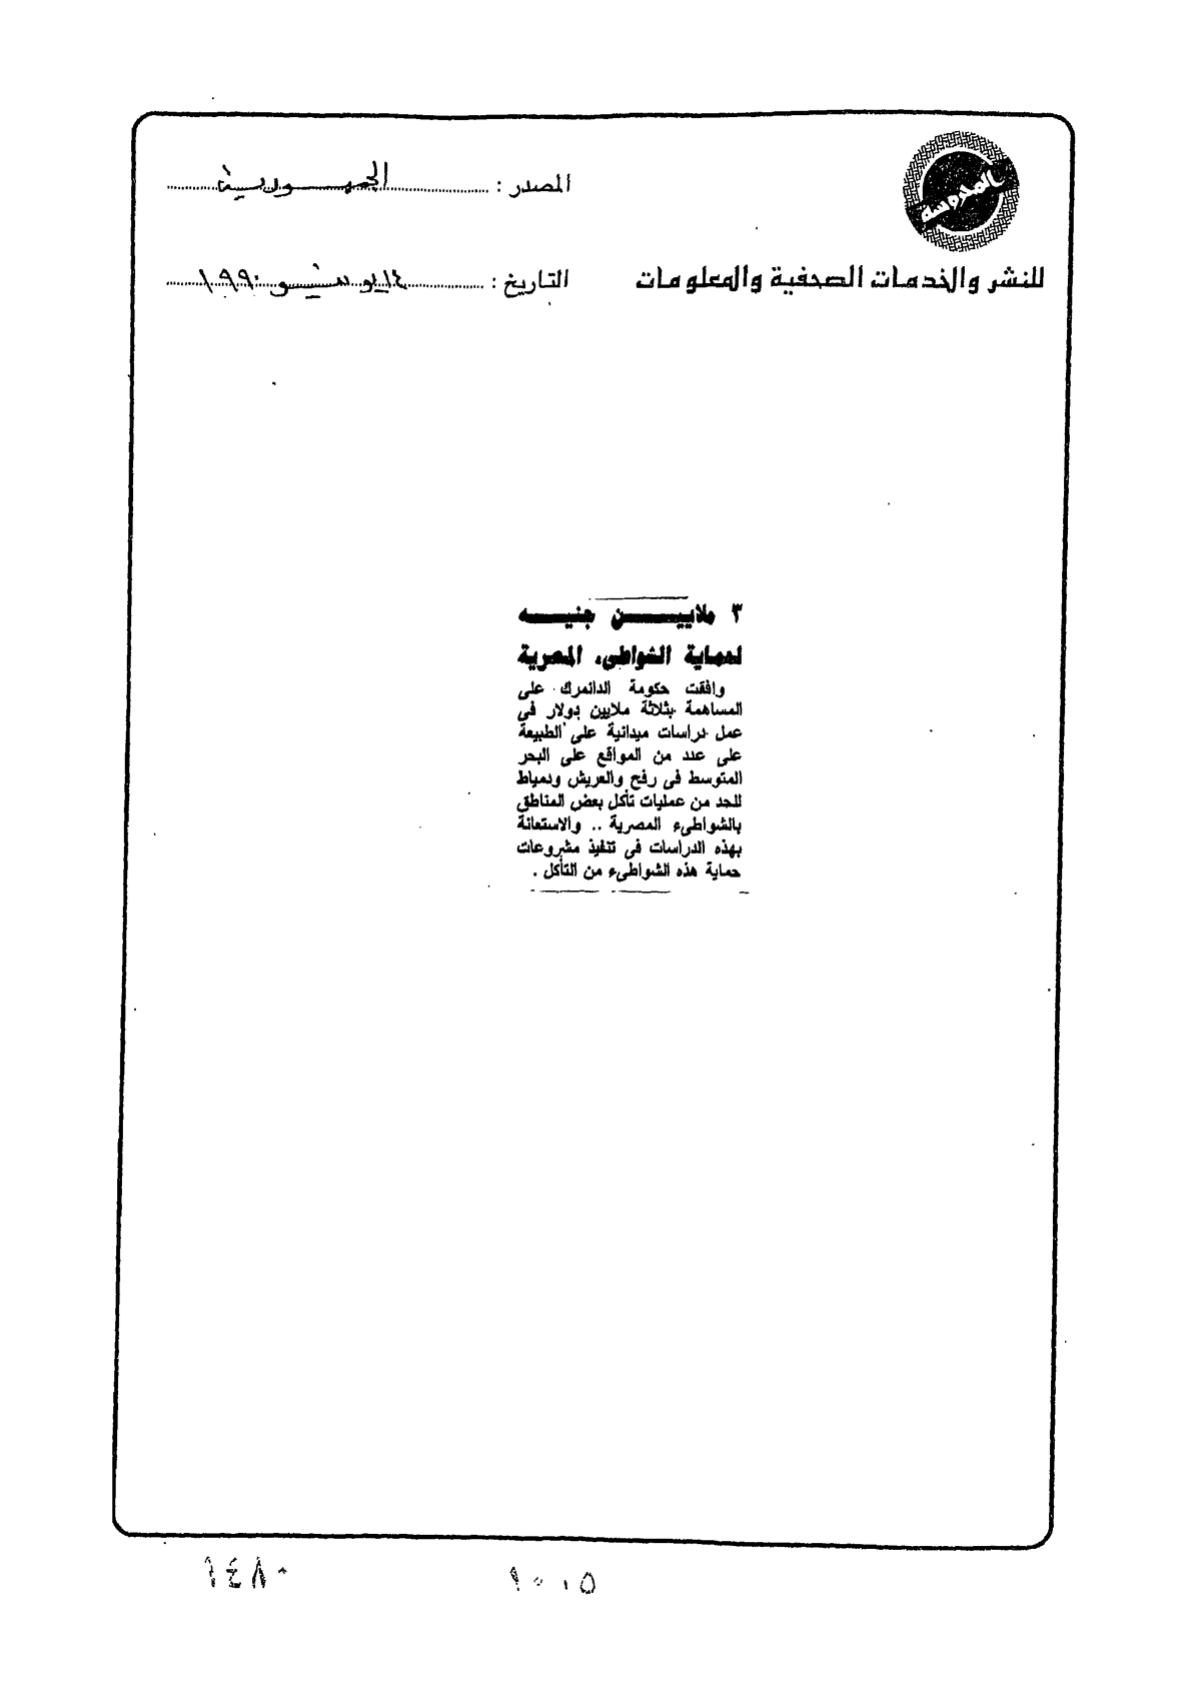 المحروسة
للنشر والخدمات الصحفية والمعلومات
المصدر : الجمهورية
التاريخ : ١٤ يونيو ١٩٩٠
٣ ملاييــن جنيــه
لحماية الشواطىء المصرية
وافقت حكومة الدانمرك على
المساهمة بثلاثة ملايين دولار فى
عمل دراسات ميدانية على الطبيعة
على عدد من المواقع على البحر
المتوسط فى رفح والعريش ودمياط
للحد من عمليات تأكل بعض المناطق
بالشواطىء المصرية .. والاستعانة
بهذه الدراسات فى تنفيذ مشروعات
حماية هذه الشواطىء من التأكل .